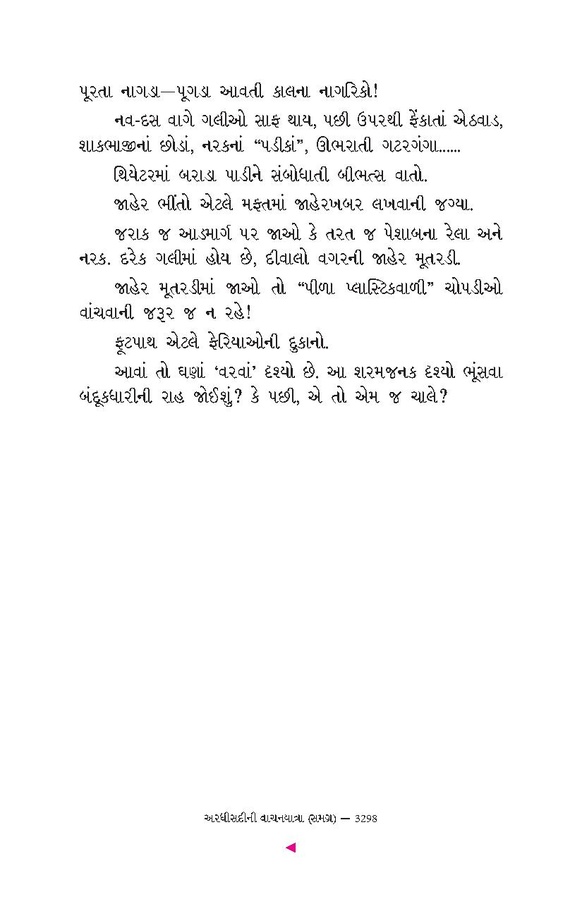 પૂરતા નાગડા—પૂગડા આવતી કાલના નાગરિકો!
નવ-દસ વાગે ગલીઓ સાફ થાય, પછી ઉપરથી ફેંકાતાં એઠવાડ,
શાકભાજીનાં છોડાં, નરકનાં “પડીકાં”, ઊભરાતી ગટરગંગા......
થિયેટરમાં બરાડા પાડીને સંબોધાતી બીભત્સ વાતો.
જાહેર ભીંતો એટલે મફતમાં જાહેરખબર લખવાની જગ્યા.
જરાક જ આડમાર્ગ પર જાઓ કે તરત જ પેશાબના રેલા અને
નરક. દરેક ગલીમાં હોય છે, દીવાલો વગરની જાહેર મૂતરડી.
જાહેર મૂતરડીમાં જાઓ તો “પીળા પ્લાસ્ટિકવાળી” ચોપડીઓ
વાંચવાની જરૂર જ ન રહે!
ફૂટપાથ એટલે ફેરિયાઓની દુકાનો.
આવાં તો ઘણાં ‘વરવાં’ દૃશ્યો છે. આ શરમજનક દૃશ્યો ભૂંસવા
બંદૂકધારીની રાહ જોઈશું? કે પછી, એ તો એમ જ ચાલે?
અરધીસદીની વાચનયાત્રા (સમગ્ર) — 3298